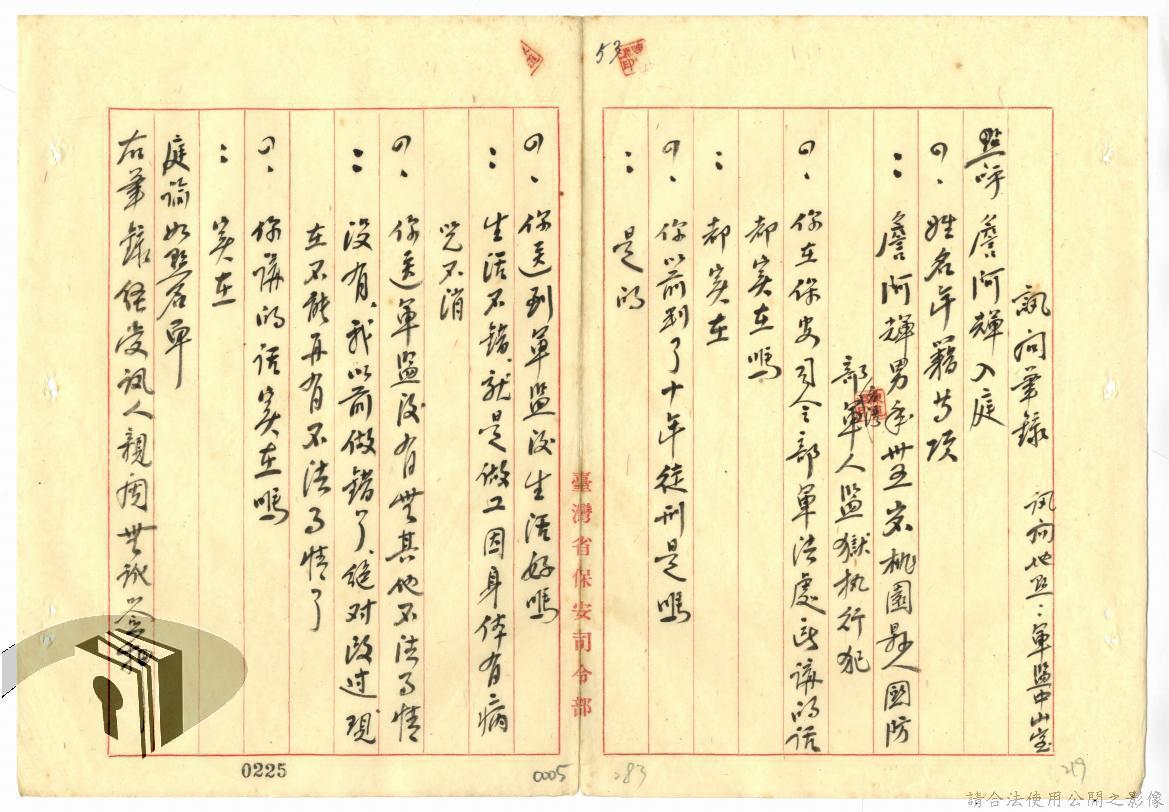 53
訊問筆錄 訊問地點：軍監中山室
點呼 詹阿輝入庭
問、姓名年籍等項
：詹阿輝男年卅五歲桃園縣人國防
部軍人監獄执行犯
問、你在保安司令部軍法處所講的話
都实在嗎
：都实在
問、你以前判了十年徒刑是嗎
：是的
臺灣省保安司令部
問、你送到軍監後生活好嗎
：生活不錯、就是做工因身体有病
吃不消
問、你送軍監後有無其他不法事情
：没有、我以前做錯了、絕对改过現
在不能再有不法事情了
問、你講的話实在嗎
：实在
庭諭如點名單
右筆錄經受訊人親閱無訛簽
0225
0005
283
219
請合法使用公開之影像